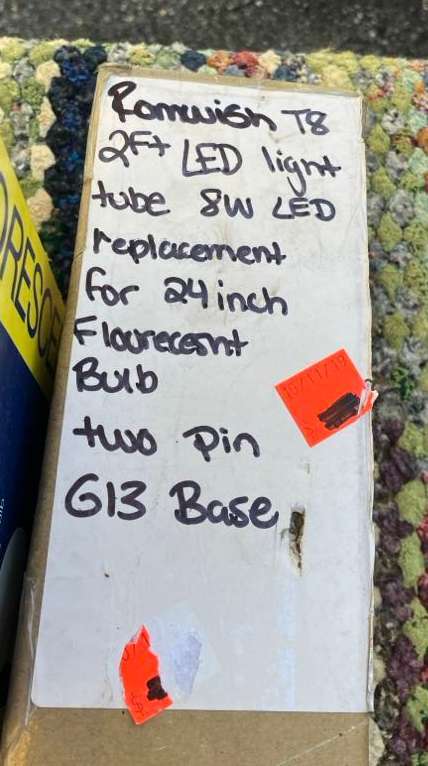 Romwish T8
2Ft LED light
tube 8W LED
replacement
for 24 inch
Flourecesnt
Bulb
two pin
G13 Base
10/11/19
ORESCE